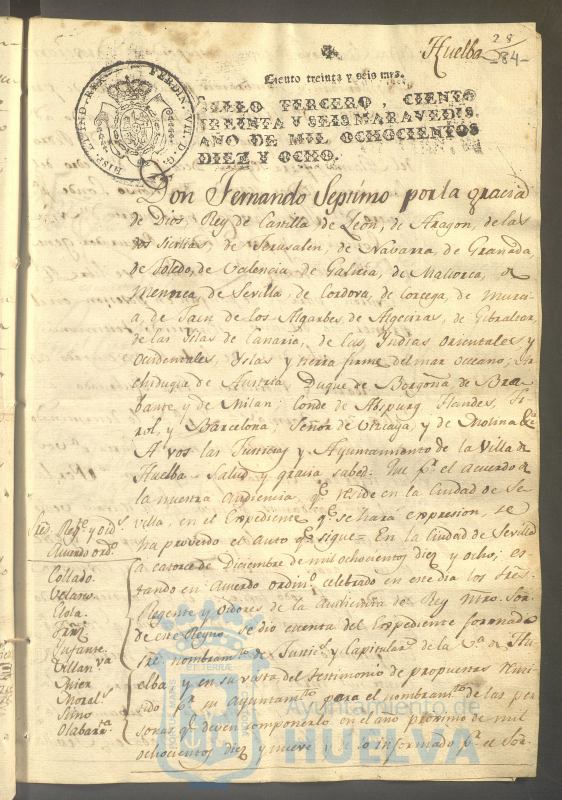 Huelba 28
84-
Ciento treinta y seis mrs.
SELLO TERCERO, CIENTO
TREINTA Y SEIS MARAVEDIS,
AÑO DE MIL OCHOCIENTOS
DIEZ Y OCHO.
FERDIN. VII. D. G.
HISP. ET IND. REX
Don Fernando Septimo por la gracia
de Dios, Rey de Castilla de León, de Aragon, de las
dos Sicilias, de Jerusalen, de Navarra, de Granada,
de Toledo, de Valencia, de Galicia, de Mallorca, de
Menorca de Sevilla, de Cordova, de Corcega, de Murci-
a, de Jaen de los Algarbes de Algeciras, de Gibraltar,
de las Yslas de Canaria, de las Yndias orientales y
Ocidentales, Yslas y tierra firme del mar oceano; Ar-
chiduque de Austria Duque de Borgoña de Bra-
bante y de Milan; Conde de Abspurg Flandes, Ti-
rol y Barcelona, Señor de Vizcaya, y de Molina &a
A vos las Justicias y Ayuntamiento de la Villa de
Huelba Salud y gracia sabed: Que pr. el Acuerdo de
la nuestra Audiencia, qe. reside en la Ciudad de Se-
villa, en el Expediente qe. se hará expresion, se
ha proveido el Auto qe. sigue = En la Ciudad de Sevilla
a catorce de Diciembre de mil ochocientos diez y ocho; es-
tando en Acuerdo ordino. celebrado en este dia los Sres.
Regente y oidores de la Audiencia de Rey Ntro. Sor.
de este Reyno, se dio cuenta del Expediente formado
sre. nombramto. de Justica. y Capitulars. de la Va. de Hu-
elba, y en su vista del testimonio de propuestas
pr. su Ayuntamto. para el nombramto. de las per-
sonas qe. deven componerlo en el año proximo de mil
ochocientos diez y nueve y lo informado pr. el Sor.
Sres. Regte. y oids.
Acuerdo ordo.
Collado.
Velasco.
Clola.
Infante.
Villanva.
Mier
Morals.
Sino
Olabarra.
Ayuntamiento de
HUELVA